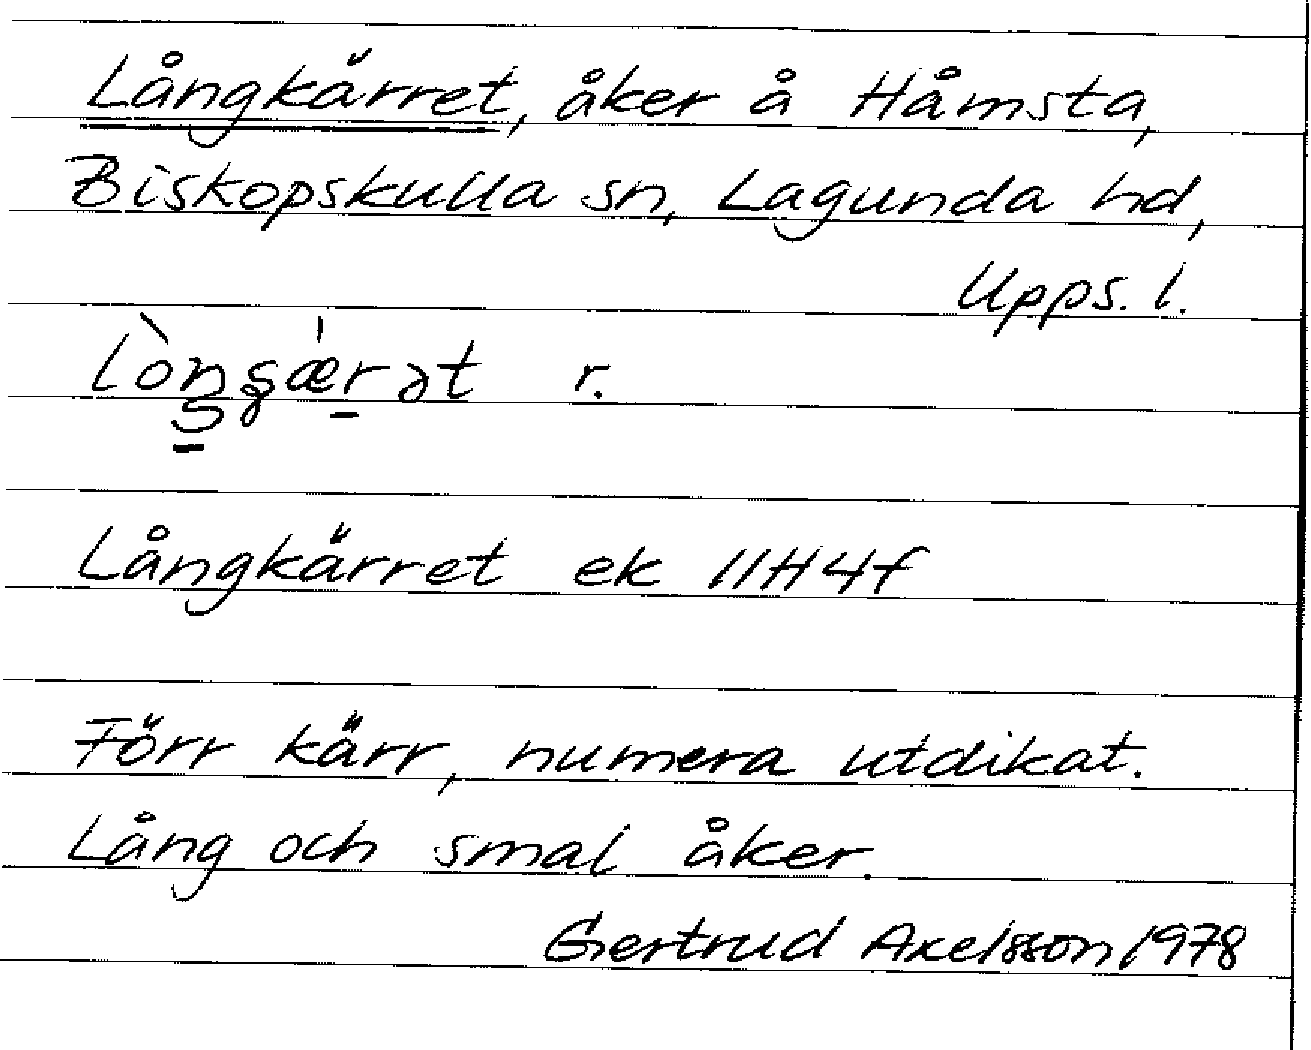 Långkärret, åker å Håmsta,
Biskopskulla sn, Lagunda hd,
Upps. l.
r.
Långkärret ek 11H4f
Förr kärr, numera utdikat.
Lång och smal åker.
Gertrud Axelsson 1978